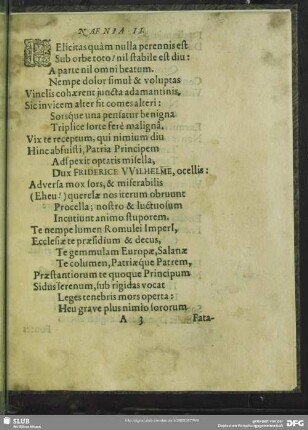 NAENIA II.
FElicitas quàm nulla perennis est
Sub orbe toto/ nil stabile est diu:
A parte nil omni beatum.
Nempe dolor simul & voluptas
Vinclis cohærent juncta adamantinis,
Sic invicem alter fit comes alteri:
Sorsque una pensatur benigna
Triplice sorte ferè maligna.
Vix te receptum, qui nimium diu
Hinc abfuisti, Patria Principem
Adspexit optatis misella,
Dux FRIDERICE VVILHELME, ocellis:
Adversa mox sors, & miserabilis
(Eheu!) querelæ nos iterum obruunt
Procella; nostro & luctuosum
Incutiunt animo stuporem.
Te nempe lumen Romulei Imperî,
Ecclesiæ te præsidium & decus,
Te gemmulam Europæ, Salanæ
Te columen, Patriæque Patrem,
Præstantiorum te quoque Principum
Sidus serenum, sub rigidas vocat
Leges tenebris mors operta:
Heu grave plus nimio sororum
A 3 Fata-
SLUB
DFG